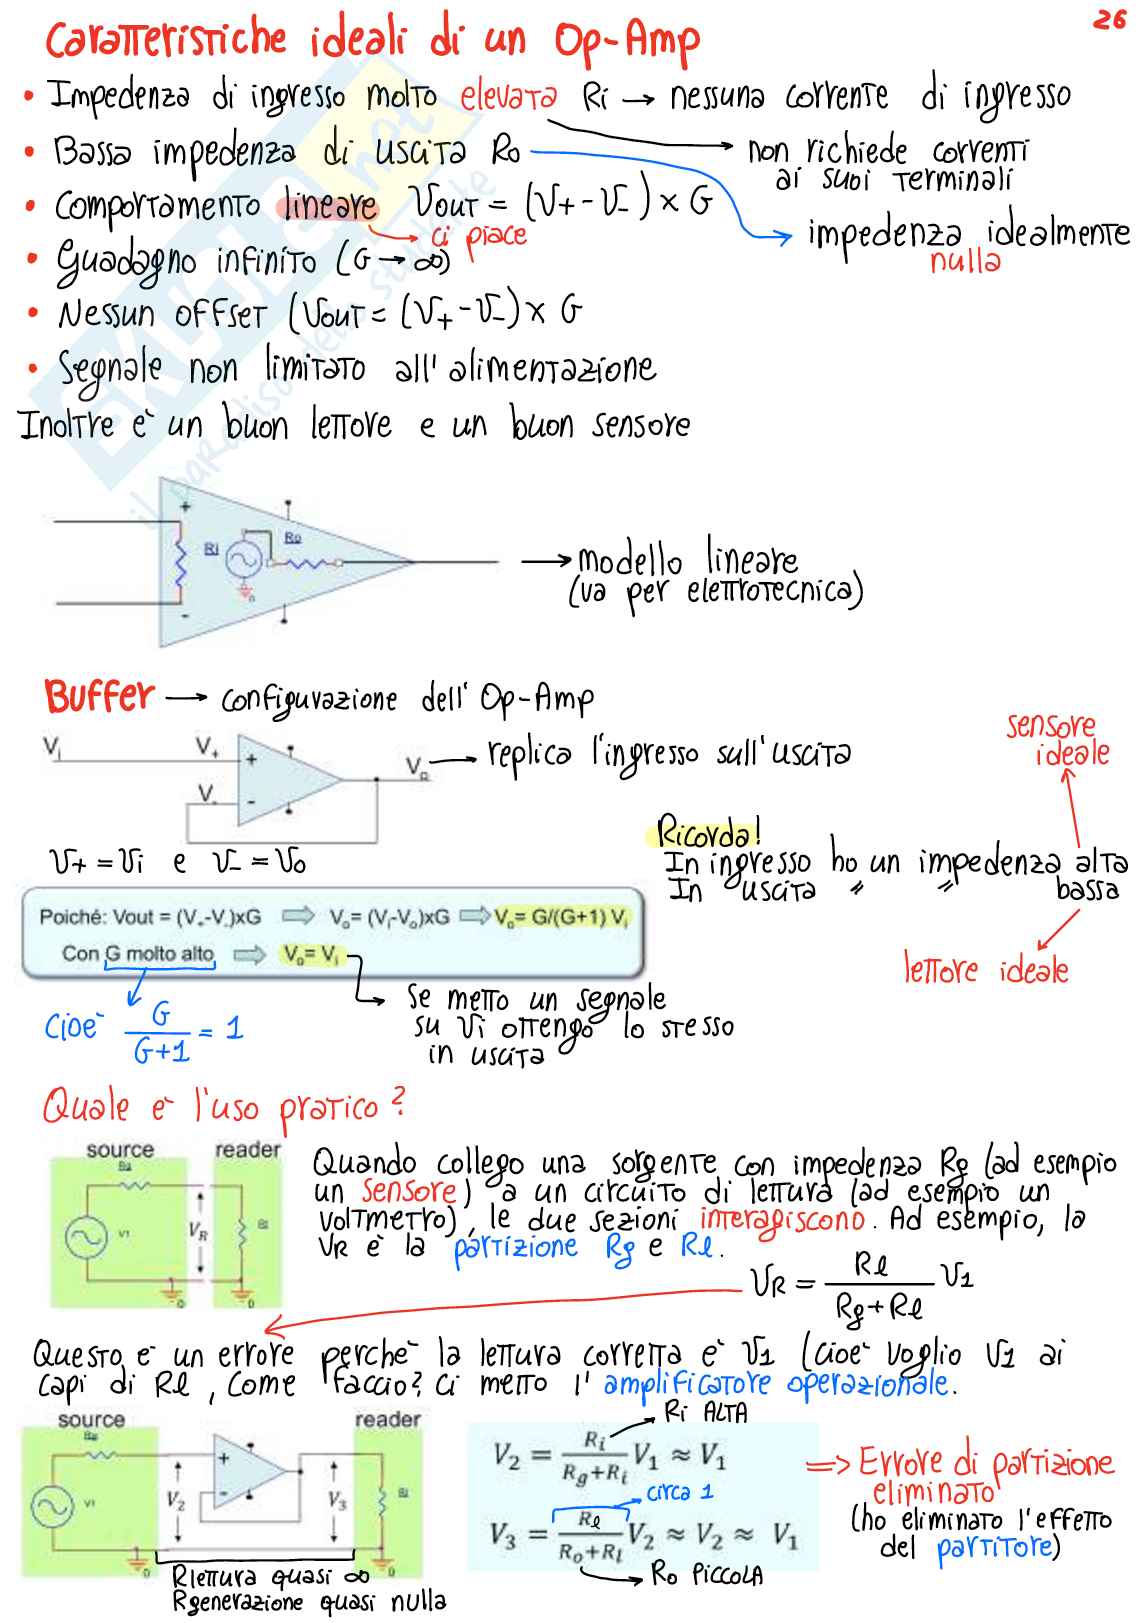 26
Caratteristiche ideali di un Op-Amp
• Impedenza di ingresso molto elevata Ri → nessuna corrente di ingresso
• Bassa impedenza di uscita Ro
non richiede correnti
ai suoi terminali
• Comportamento lineare Vout = (V+ - V-) × G
ci piace
impedenza idealmente
nulla
• Guadagno infinito (G → ∞)
• Nessun offset (Vout = (V+ - V-) × G
• Segnale non limitato all'alimentazione
Inoltre è un buon lettore e un buon sensore
SKUOLA.net
il paradiso dello studente
+
Ri
Ro
0
-
→ modello lineare
(va per elettrotecnica)
Buffer → configurazione dell'Op-Amp
Vi V+ +
V- -
Vo → replica l'ingresso sull'uscita
sensore
ideale
V+ = Vi e V- = Vo
Ricorda!
In ingresso ho un impedenza alta
In uscita " " bassa
lettore ideale
Poiché: Vout = (V+-V-)xG ⇒ Vo= (Vi-Vo)xG ⇒ Vo= G/(G+1) Vi
Con G molto alto ⇒ Vo= Vi
cioè G/(G+1) = 1
Se metto un segnale
su Vi ottengo lo stesso
in uscita
Quale è l'uso pratico?
source reader
Rg
V1
VR
Rl
0 0
Quando collego una sorgente con impedenza Rg (ad esempio
un sensore) a un circuito di lettura (ad esempio un
voltmetro), le due sezioni interagiscono. Ad esempio, la
VR è la partizione Rg e Rl.
VR = Rl/(Rg+Rl) V1
Questo è un errore perchè la lettura corretta è V1 (cioè voglio V1 ai
capi di Rl, come faccio? Ci metto l'amplificatore operazionale.
source reader
Rg
V1
V2
+
-
V3
Rl
0 0
Rlettura quasi ∞
Rgenerazione quasi nulla
Ri ALTA
V2 = Ri/(Rg+Ri) V1 ≈ V1
circa 1
V3 = Rl/(Ro+Rl) V2 ≈ V2 ≈ V1
Ro PICCOLA
⇒ Errore di partizione
eliminato
(ho eliminato l'effetto
del partitore)